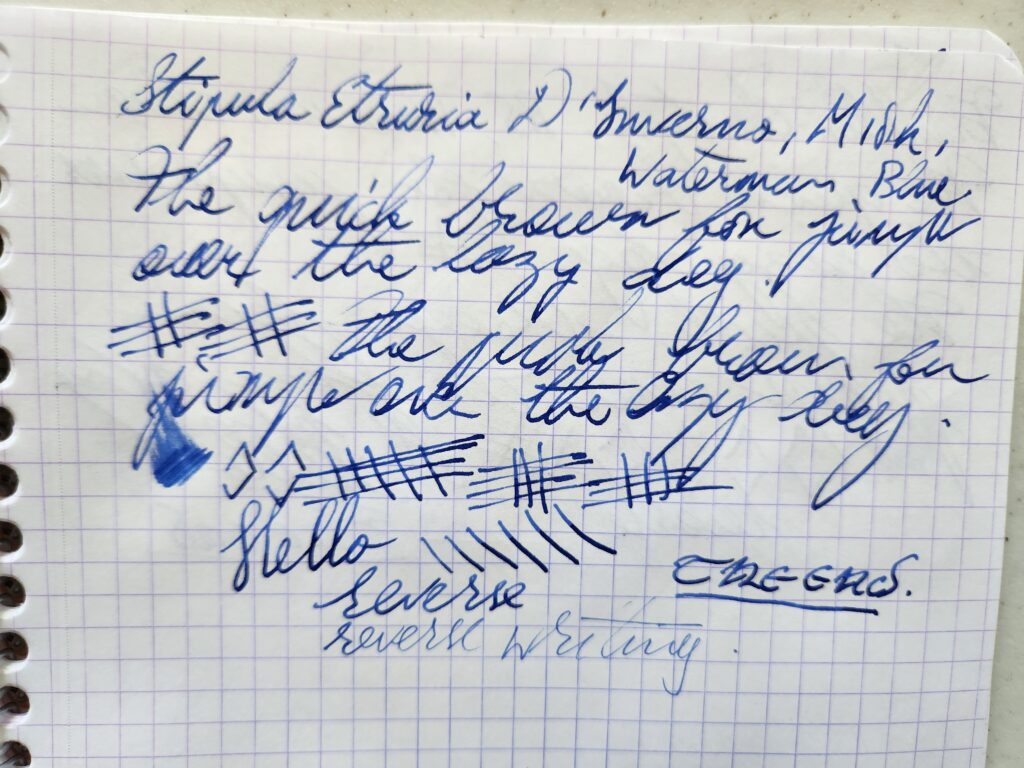 Stipula Etruria D'Inverno, M Tok,
Waterman Blue
The quick brown fox jumps
over the lazy dog.
The quick brown fox
jumps over the lazy dog.
Hello
reverse
CHEERS.
reverse writing.